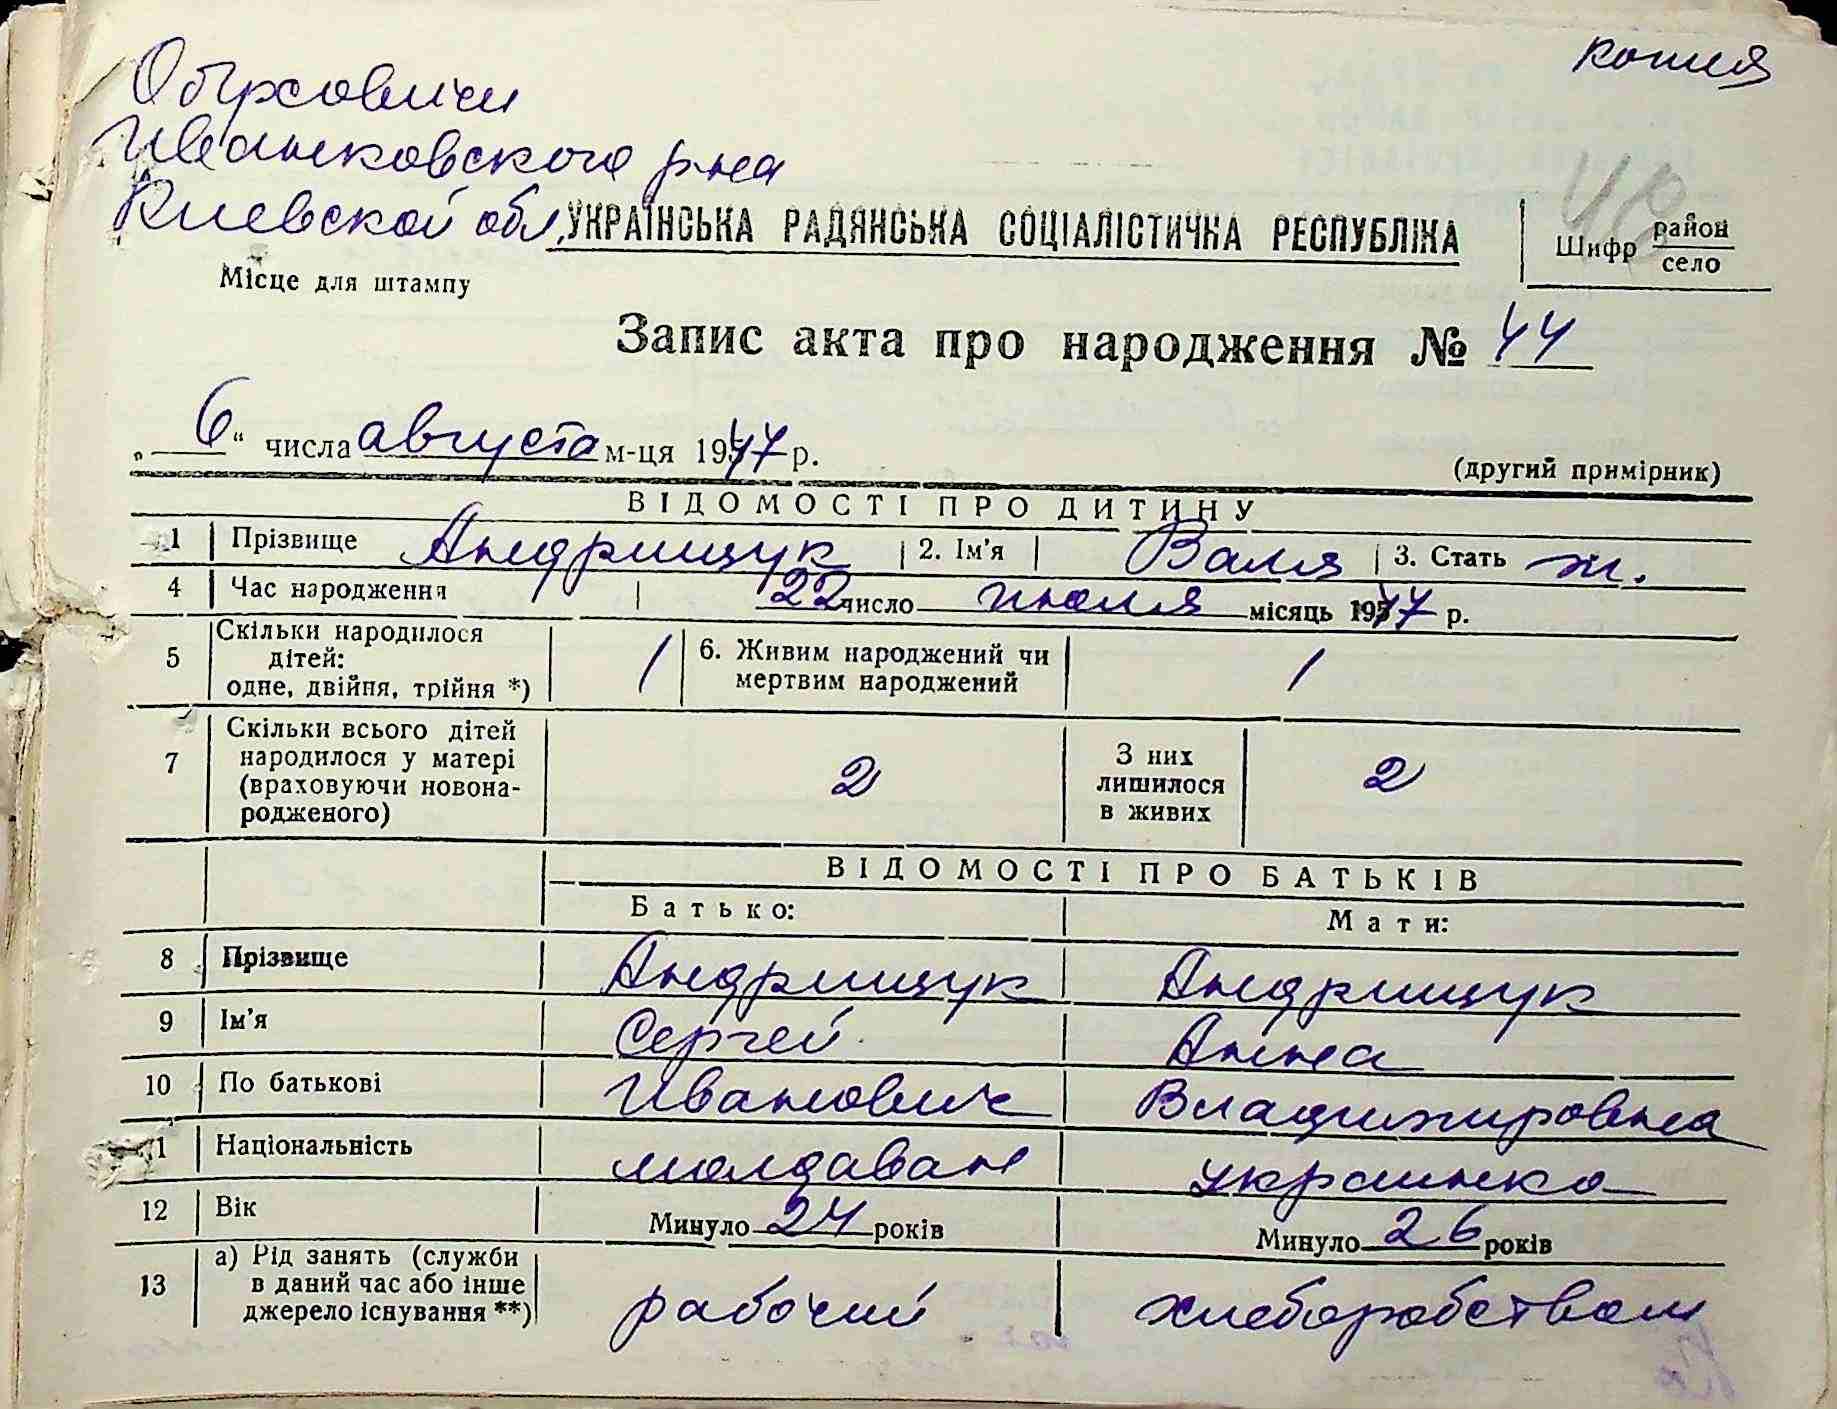 копия
Обуховичи
Иванковского р-на
Киевской обл.
УКРАЇНСЬКА РАДЯНСЬКА СОЦІАЛІСТИЧНА РЕСПУБЛІКА
48
Шифр район
село
Місце для штампу
Запис акта про народження № 44
„ 6 “ числа августа м-ця 1947 р.
(другий примірник)
ВІДОМОСТІ ПРО ДИТИНУ
1 Прізвище Андрищук 2. Ім'я Валя 3. Стать ж.
4 Час народження 22 число июля місяць 1947 р.
5 Скільки народилося дітей: одне, двійня, трійня *) 1 6. Живим народжений чи мертвим народжений 1
7 Скільки всього дітей народилося у матері (враховуючи новонародженого) 2 З них лишилося в живих 2
ВІДОМОСТІ ПРО БАТЬКІВ
Батько: Мати:
8 Прізвище Андрищук Андрищук
9 Ім'я Сергей Анна
10 По батькові Иванович Владимировна
11 Національність молдаван украинка
12 Вік Минуло 24 років Минуло 26 років
13 а) Рід занять (служби в даний час або інше джерело існування **) рабочий хлеборобством